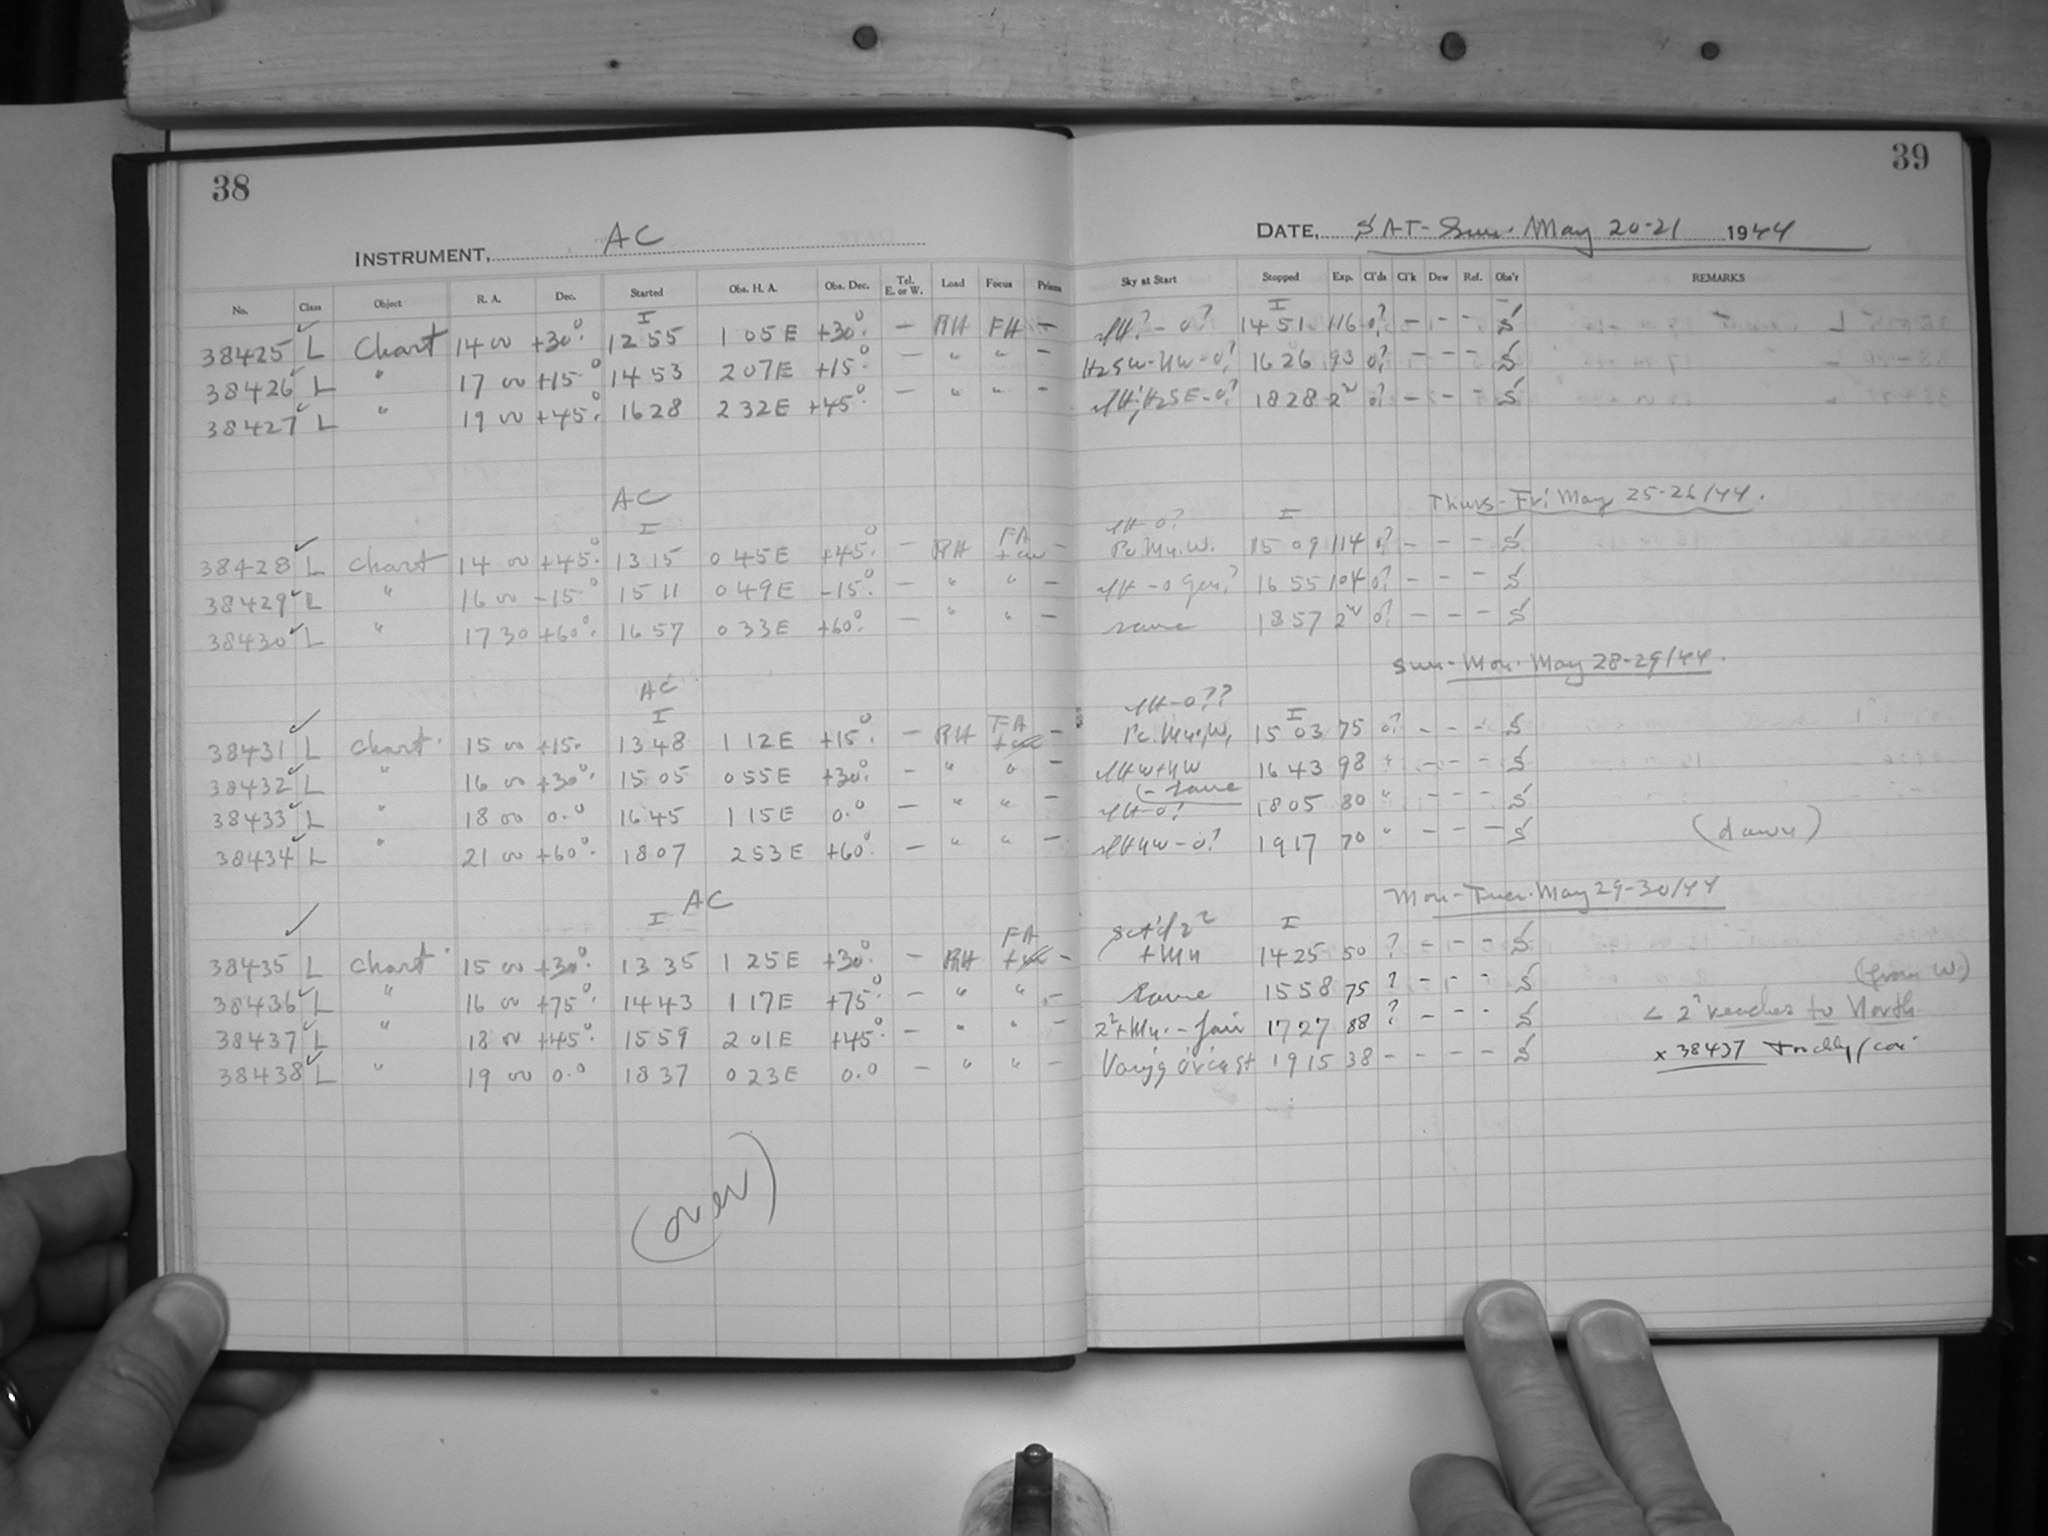 38
39
INSTRUMENT, AC
DATE, SAT-Sun. May 20-21 1944
No. Class Object R. A. Dec. Started Obs. H. A. Obs. Dec. Tel. E. or W. Load Focus Prisms Sky at Start Stopped Exp. Cl'ds Cl'k Dew Ref. Obs'r REMARKS
I I
38425 L Chart 14 00 +30°. 12 55 1 05 E +30°. — RH FH — 0? 14 51 116 0? — — - S
38426 L " 17 00 +15°. 14 53 2 07 E +15°. — " " - H2SW-HW-0? 16 26 93 0? - - - S
38427 L " 19 00 +45°. 16 28 2 32 E +45°. — " " - H2SE-0? 18 28 2 0? - - - S
AC Thurs-Fri May 25-26/44.
I I
38428 L Chart 14 00 +45°. 13 15 0 45 E +45°. — RH FA — 15 09 114 0? - - - S
38429 L " 16 00 -15° 15 11 0 49 E -15°. — " " — 16 55 104 0? - - - S
38430 L " 17 30 +60°. 16 57 0 33 E +60°. — " " — same 18 57 2 0? - - - S
Sun-Mon. May 28-29/44.
AC
I I
38431 L Chart 15 00 +15. 13 48 1 12 E +15°. — RH FA — 15 03 75 0? - - - S
38432 L " 16 00 +30°. 15 05 0 55 E +30°. — " " — 16 43 98 " - - - S
38433 L " 18 00 0.0 16 45 1 15 E 0.0 — " " — 18 05 80 " - - - S
38434 L " 21 00 +60°. 18 07 2 53 E +60°. — " " — 19 17 70 " - - - S (dawn)
AC Mon-Tues. May 29-30/44
I I
38435 L Chart 15 00 +30°. 13 35 1 25 E +30°. — RH FA - 14 25 50 ? - - - S
38436 L " 16 00 +75°. 14 43 1 17 E +75°. — " " - Same 15 58 75 ? - - - S (from W)
38437 L " 18 00 +45°. 15 59 2 01 E +45°. — " " - fair 17 27 88 ? - - - S reaches to North
38438 L " 19 00 0.0 18 37 0 23 E 0.0 — " " — 19 15 38 - - - - S x 38437
(over)